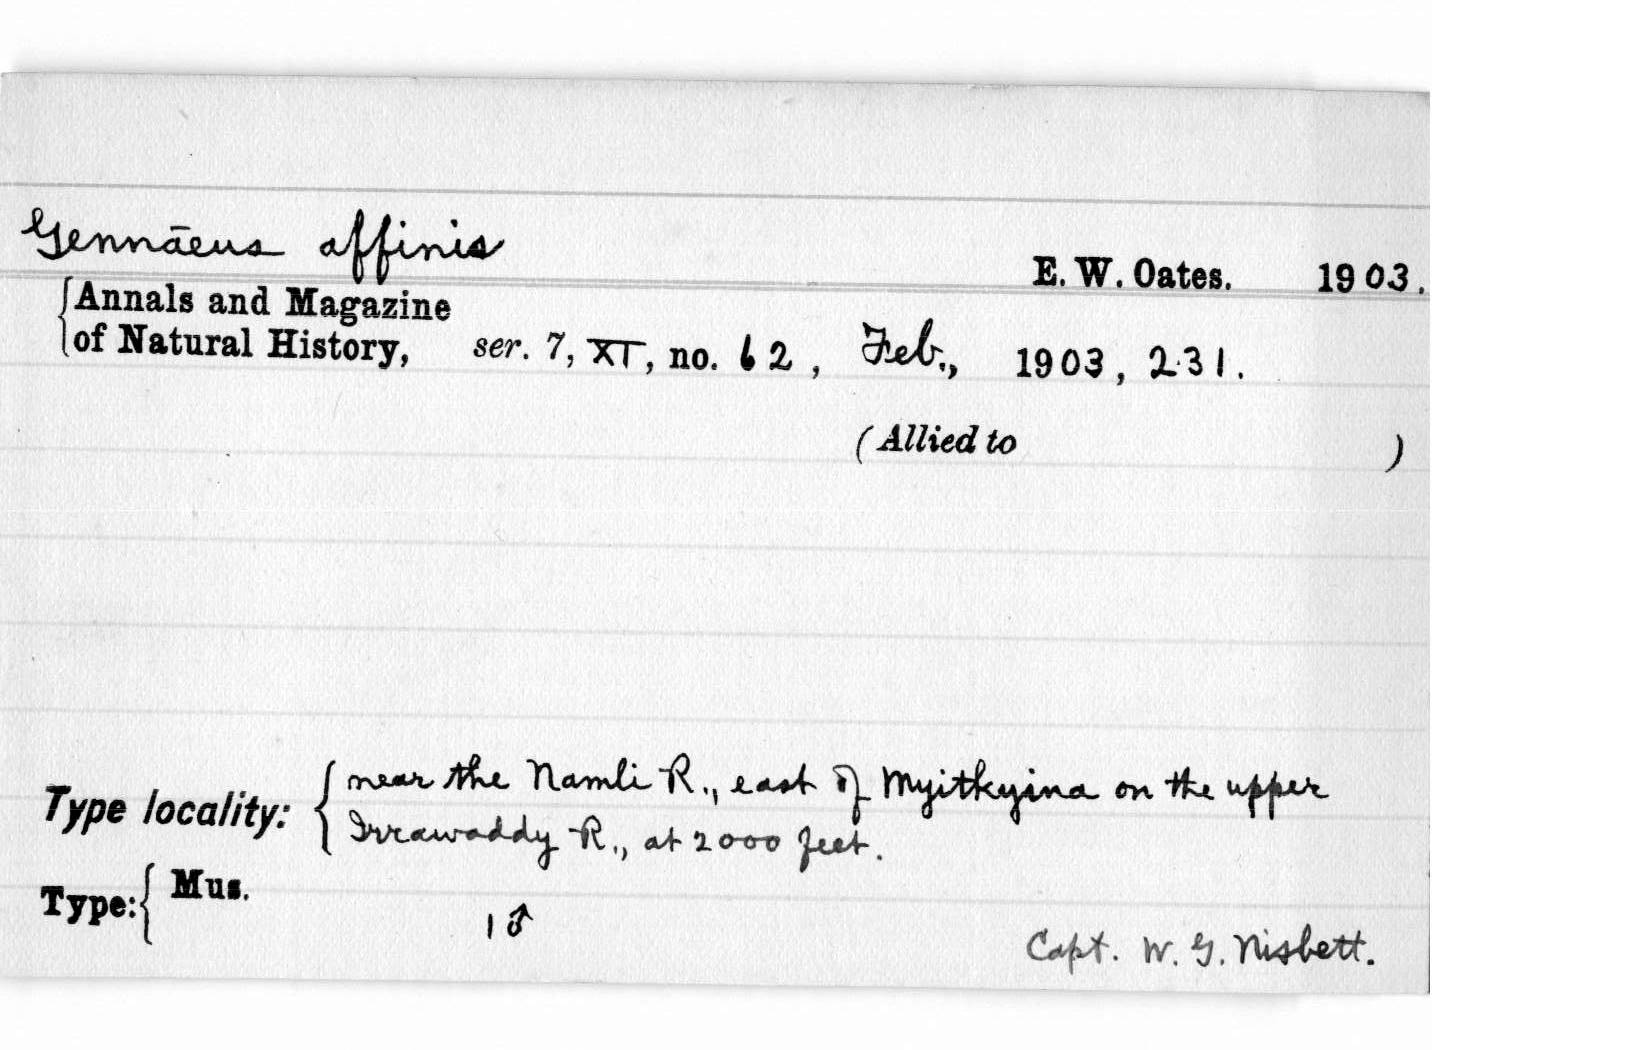 Gennāeus affinis
E. W. Oates. 1903.
Annals and Magazine
of Natural History, ser. 7, XI, no. 62, Feb., 1903, 231.
(Allied to )
Type locality: near the Namli R., east of Myitkyina on the upper
Irrawaddy R., at 2000 feet.
Type: Mus.
1 ♂
Capt. W. G. Nisbett.